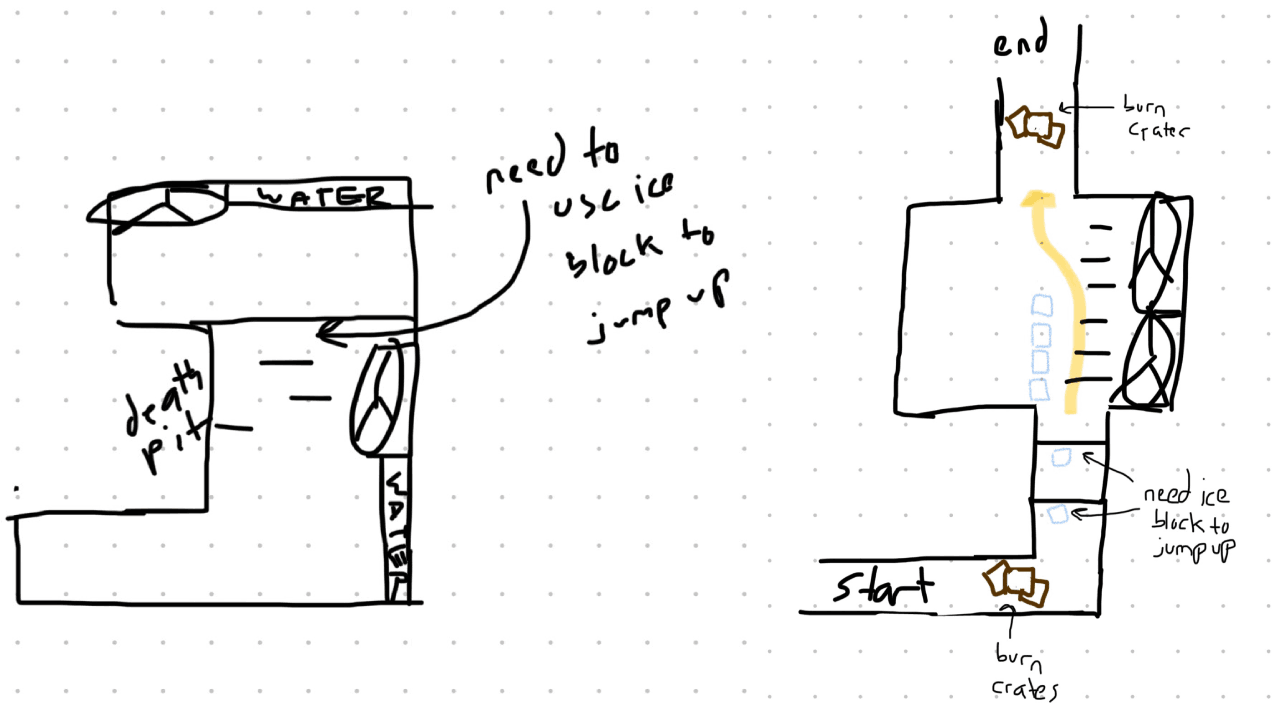 WATER
need to
use ice
block to
jump up
death
pit
WATER
end
burn
crater
need ice
block to
jump up
start
burn
crates